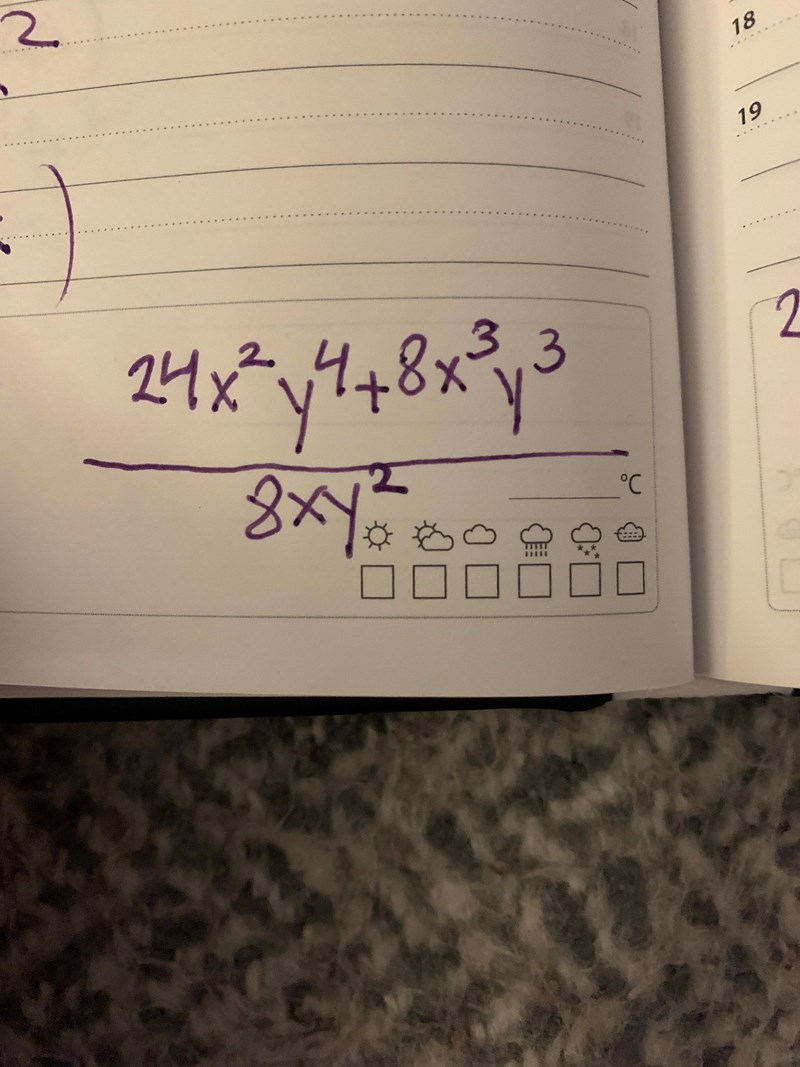 2
18
19
)
2
24x²y⁴+8x³y³
8xy²
°C